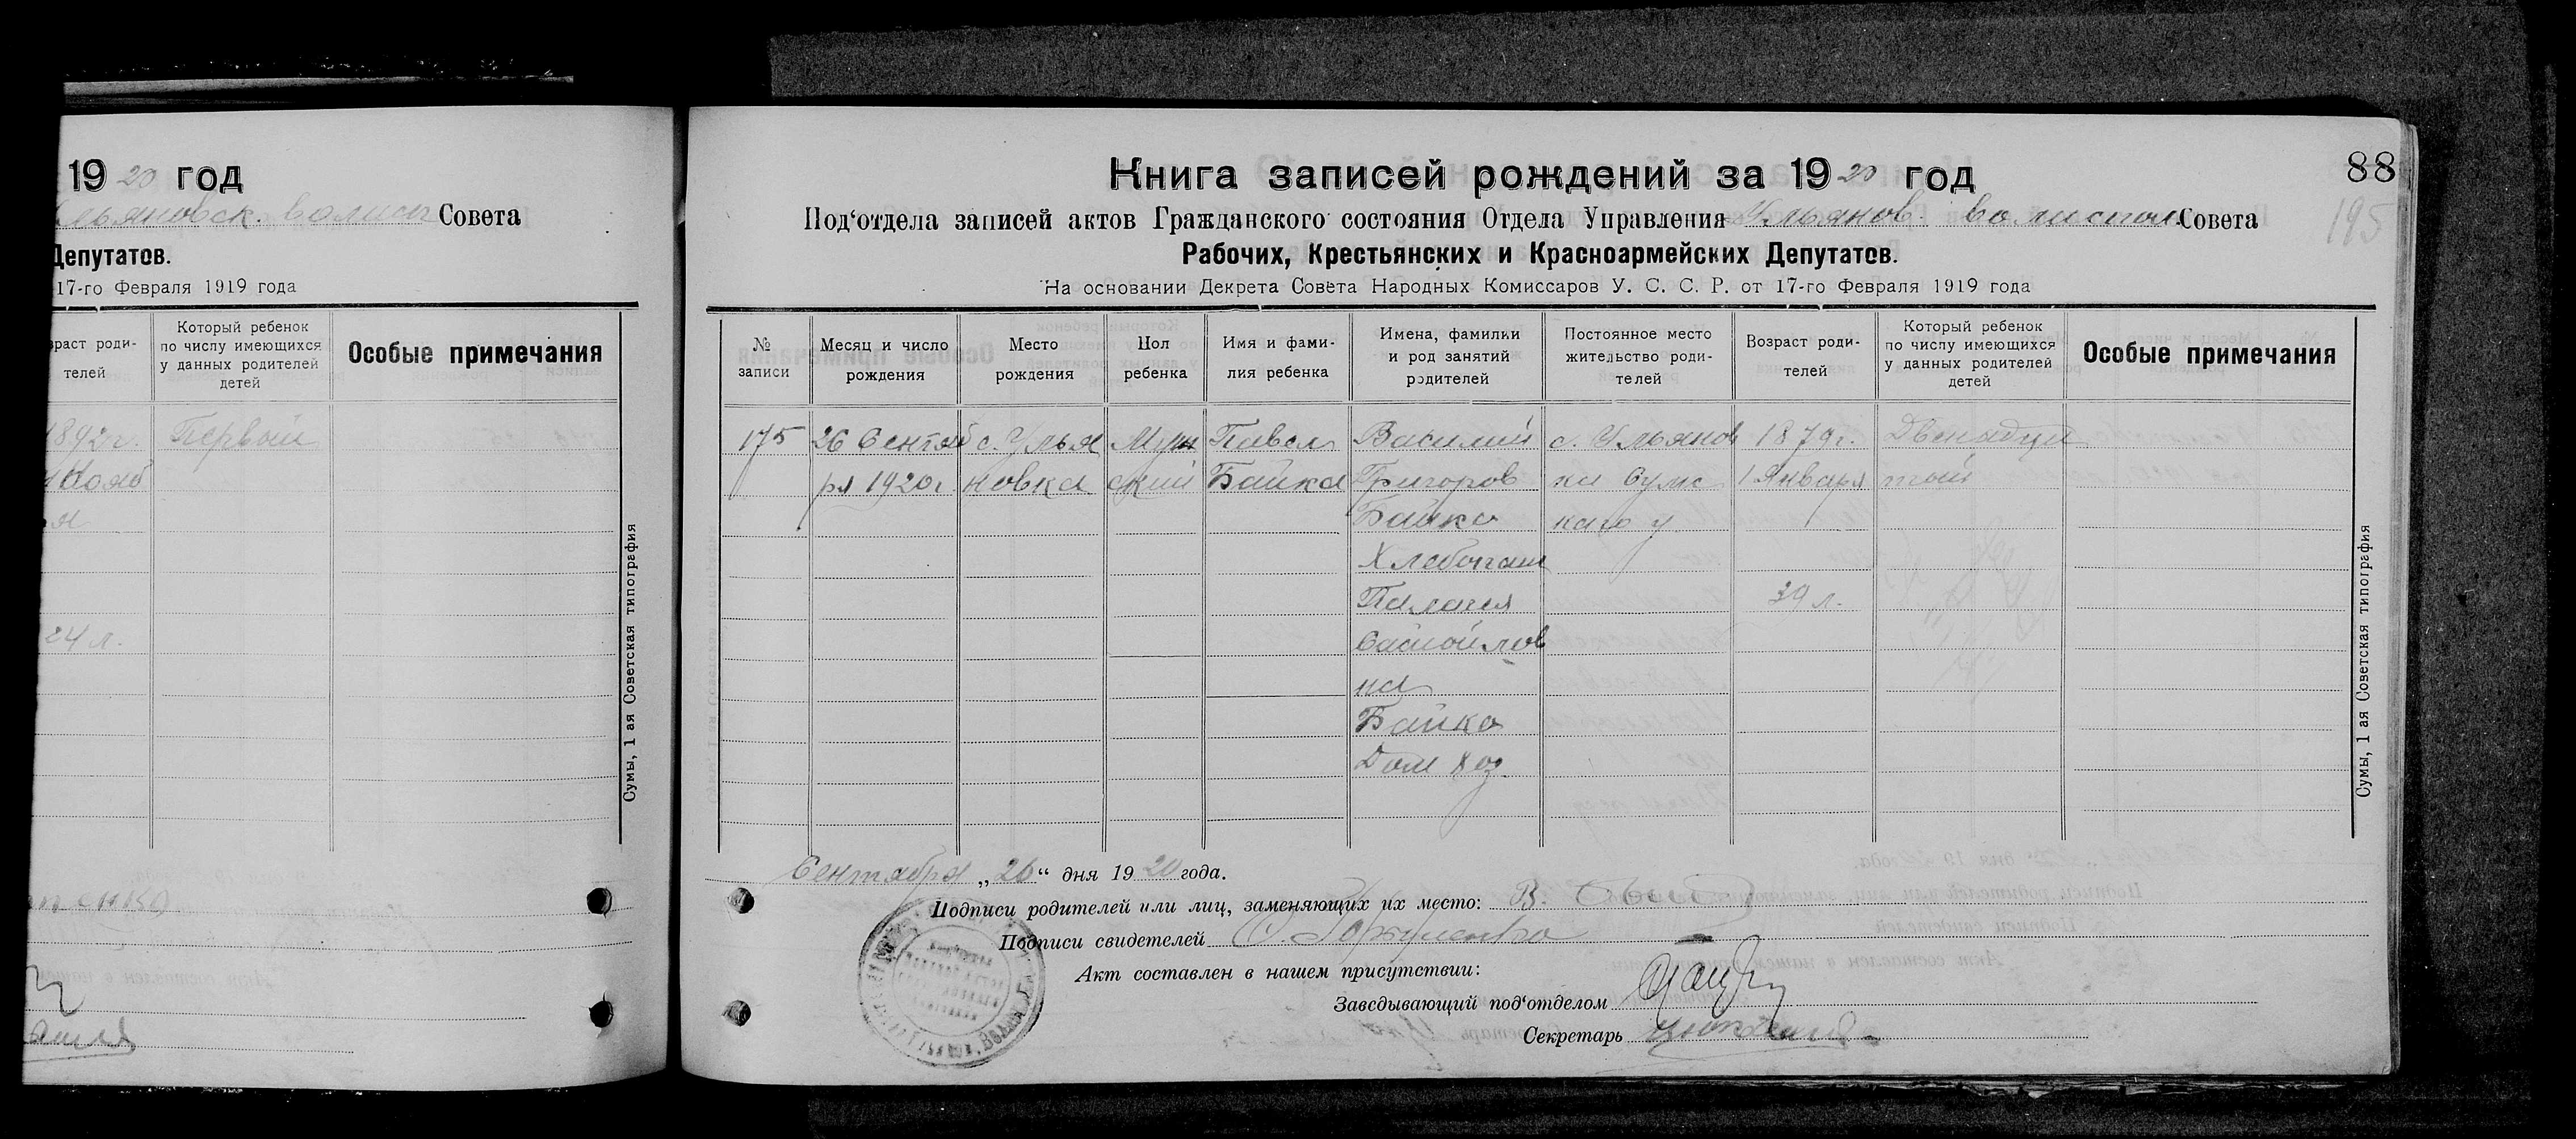 19 20 год
Ульяновск. волисп Совета
Депутатов.
17-го Февраля 1919 года
раст роди-
телей
Который ребенок
по числу имеющихся
у данных родителей
детей
Особые примечания
1892 г. Первый
24 л.
Сумы, 1 ая Советская типография
88
195
Книга записей рождений за 19 20 год
Под‘отдела записей актов Гражданского состояния Отдела Управления Ульянов. волисполк. Совета
Рабочих, Крестьянских и Красноармейских Депутатов.
На основании Декрета Совета Народных Комиссаров У. С. С. Р. от 17-го Февраля 1919 года
№
записи
Месяц и число
рождения
Место
рождения
Пол
ребенка
Имя и фами-
лия ребенка
Имена, фамилии
и род занятий
родителей
Постоянное место
жительство роди-
телей
Возраст роди-
телей
Который ребенок
по числу имеющихся
у данных родителей
детей
Особые примечания
175 26 Сентяб с. Улья Муж Павел Василий с. Ульянов 1879 г. Двенадца
ря 1920 г. новка ский Байка Григоров ки Сумс 1 Января тый
Байко каго у
Хлебопаш
Палагея 39 л.
Самойлов
на
Байко
Дом хоз.
Сентября „26“ дня 19 20 года.
Подписи родителей или лиц, заменяющих их место: В.
Подписи свидетелей
Акт составлен в нашем присутствии:
Заведывающий под‘отделом
Секретарь
Сумы, 1 ая Советская типография